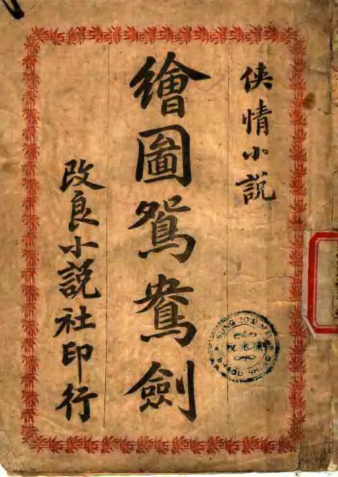 俠情小説
繪圖鴛鴦劍
改良小説社印行